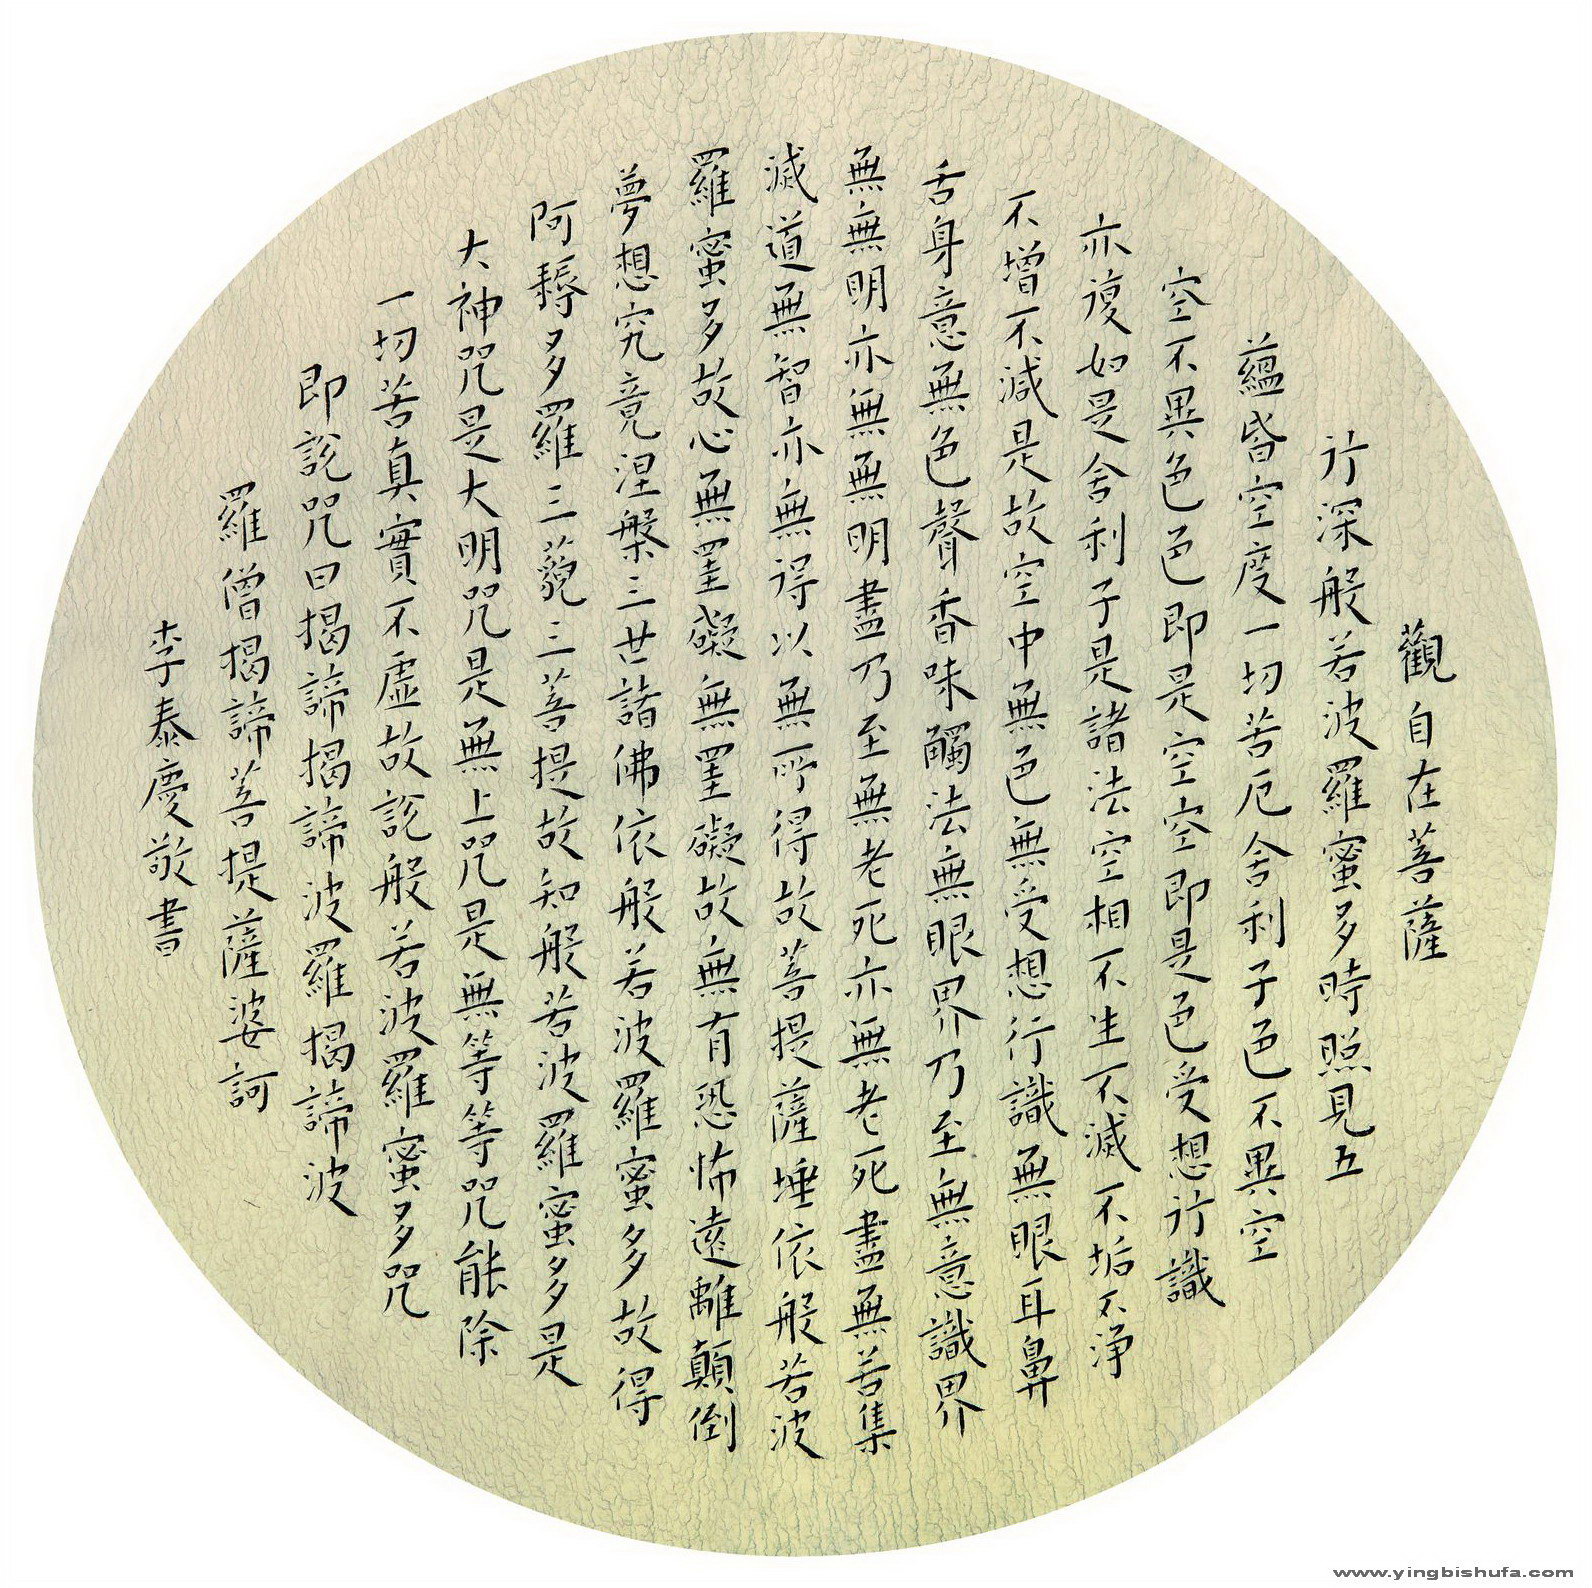 觀自在菩薩
行深般若波羅蜜多時照見五
蘊皆空度一切苦厄舍利子色不異空
空不異色色即是空空即是色受想行識
亦復如是舍利子是諸法空相不生不滅不垢不淨
不增不減是故空中無色無受想行識無眼耳鼻
舌身意無色聲香味觸法無眼界乃至無意識界
無無明亦無無明盡乃至無老死亦無老死盡無苦集
滅道無智亦無得以無所得故菩提薩埵依般若波
羅蜜多故心無罣礙無罣礙故無有恐怖遠離顛倒
夢想究竟涅槃三世諸佛依般若波羅蜜多故得
阿耨多羅三藐三菩提故知般若波羅蜜多是
大神咒是大明咒是無上咒是無等等咒能除
一切苦真實不虛故說般若波羅蜜多咒
即說咒曰揭諦揭諦波羅揭諦波
羅僧揭諦菩提薩婆訶
李泰慶敬書
www.yingbishufa.com